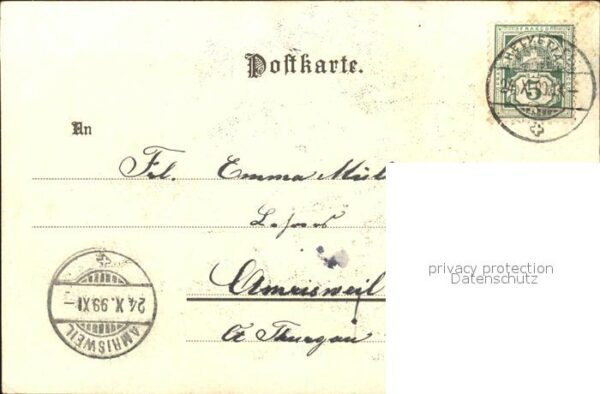 Postkarte.
An
Frl. Emma
Amrisweil
Ct. Thurgau
privacy protection
Datenschutz
5
24.X.99.XI-
AMRISWEIL